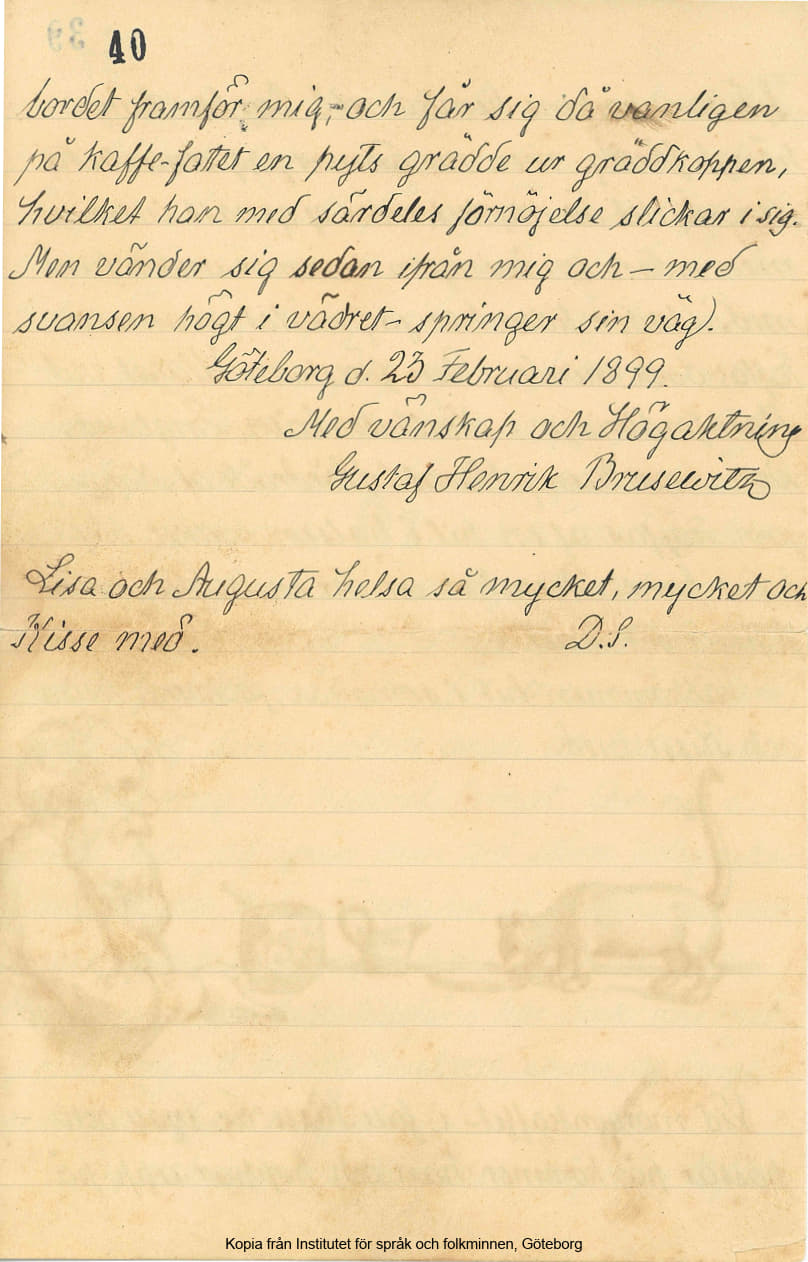 40
bordet framför mig, och får sig då vanligen
på kaffe-fatet en pyts grädde ur gräddkoppen,
hvilket han med särdeles förnöjelse slickar i sig.
Men vänder sig sedan ifrån mig och – med
svansen högt i vädret – springer sin väg).
Göteborg d. 23 Februari 1899.
Med vänskap och Högaktning
Gustaf Henrik Brusewitz
Lisa och Augusta helsa så mycket, mycket och
Kisse med. D.S.
Kopia från Institutet för språk och folkminnen, Göteborg